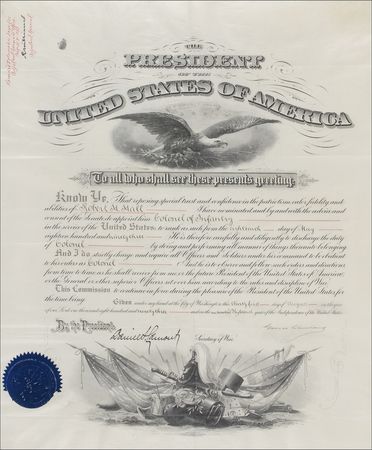 THE
PRESIDENT
OF THE
UNITED STATES OF AMERICA
To all who shall see these presents greeting:
Know Ye, That reposing special trust and confidence in the patriotism, valor, fidelity and
abilities of Robert H. Hall I have nominated and by and with the advice and
consent of the Senate do appoint him Colonel of Infantry
in the service of the United States: to rank as such from the day of May
eighteen hundred and ninety three. He is therefore carefully and diligently to discharge the duty
of Colonel by doing and performing all manner of things thereunto belonging.
And I do strictly charge and require all Officers and Soldiers under his command to be obedient
to his orders as Colonel And he is to observe and follow such orders and directions
from time to time as he shall receive from me or the future President of the United States of America,
or the General or other superior Officers set over him according to the rules and discipline of War.
This Commission to continue in force during the pleasure of the President of the United States for
the time being.
Given under my hand at the City of Washington this day of August in the year
of our Lord one thousand eight hundred and ninety three and in the one hundred and year of the Independence of the United States.
By the President:
Daniel S. Lamont
Secretary of War.